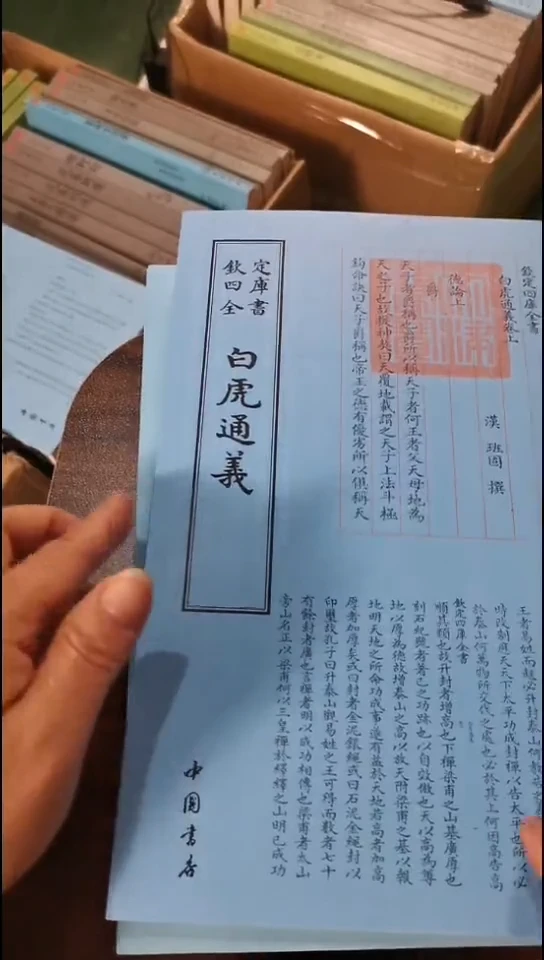 欽定四庫全書
白虎通義
欽定四庫全書
白虎通義卷上
漢 班固 撰
德論上
爵
天子者爵稱也爵所以稱天子者何王者父天母地為
天之子也故援神契曰天覆地載謂之天子上法斗極
鉤命訣曰天子爵稱也帝王之德有優劣所以俱稱天
王者易姓而起必升封泰山何
時改制應天天下太平功成封禪以告太平也所以必
於泰山何萬物所交代之處也必於其上何因高告高
欽定四庫全書
順其類也故升封者增高也下禪梁甫之山基廣厚也
刻石紀號者著己之功跡也以自效倣也天以高為尊
地以厚為德故增泰山之高以放天附梁甫之基以報
地明天地之所命功成事遂有益於天地若高者加高
厚者加厚矣或曰封者金泥銀繩或曰石泥金繩封以
印璽故孔子曰升泰山觀易姓之王可得而數者七十
有餘封者廣也言禪者明以成功相傳也梁甫者太山
旁山名正以梁甫何以三皇禪於繹繹之山明己成功
中國書店